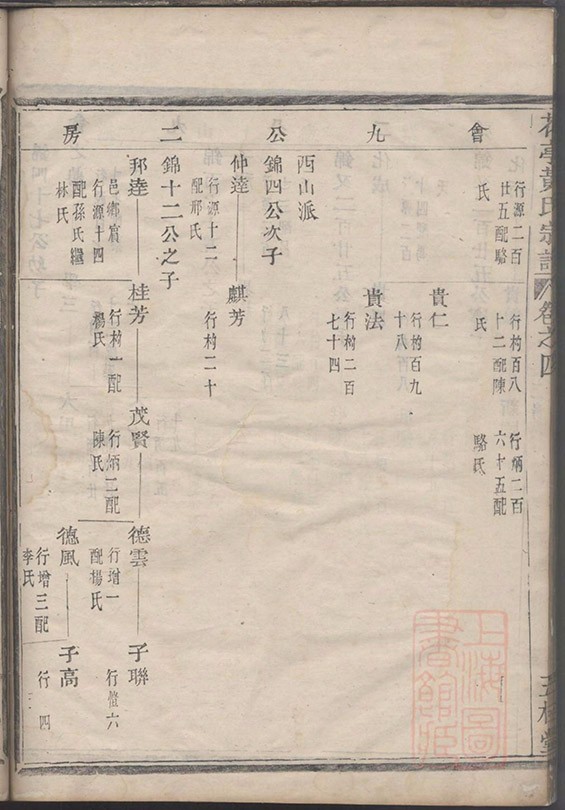 黃氏宗譜
卷之四
會
行源二百
廿五配駱
氏
行構百八
十二配陳
氏
行炳二百
六十五配
駱氏
貴仁
行構百九
十八
九
貴法
行構二百
七十四
西山派
公
錦四公次子
仲逵
行源十二
配邢氏
麒芳
行構二十
二
錦十二公之子
邦逵
邑鄉賓
行源十四
配孫氏繼
林氏
桂芳
行構一配
楊氏
茂賢
行炳二配
陳氏
德雲
行增一
配楊氏
子聯
行愷六
房
德風
行增三配
李氏
子高
行四
上海圖書館藏